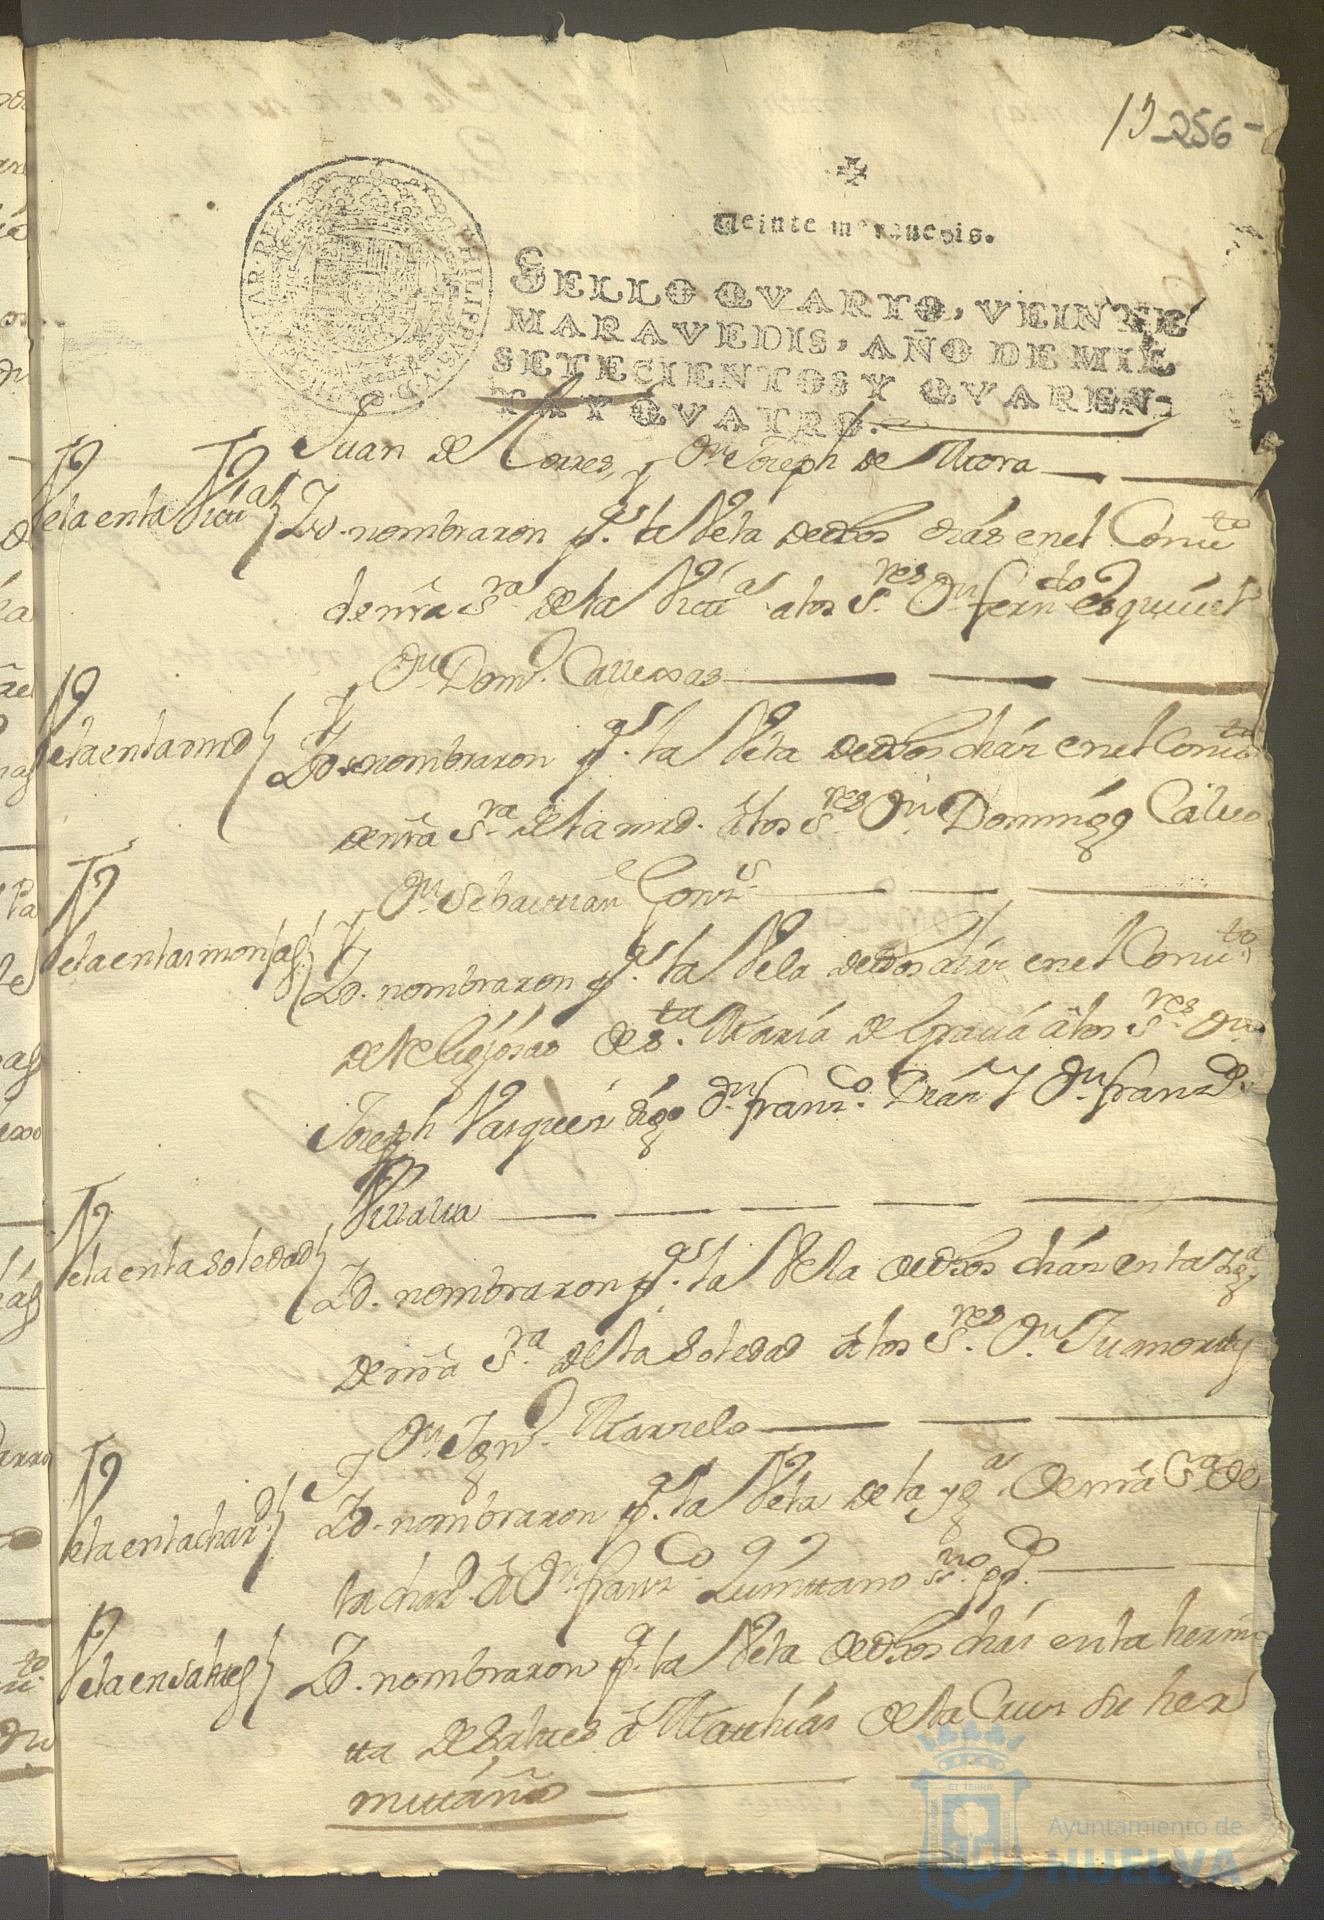 15 -256-
Veinte marauedis.
SELLO QVARTO, VEINTE
MARAVEDIS, AÑO DE MIL
SETECIENTOS Y QVAREN-
TA Y QVATRO.
PHILIPPVS V D G HISPANIAR REX
Juan de Torres, y Dn Joseph de Mora
Vela en la Victa
Yd. nombraron ps. la Vela de dhos dias en el Convto
de nra Sra. de la Victa a los Sres Dn ferndo Esquivel
Dn Domo. Callexas
Vela en la mrd
Yd. nombraron ps. la Vela de dhos dias en el Convto
de nra Sra de la mrd. a los Sres Dn Domingo Calvo
Dn Sebastian Gonzs
Vela en las monjas
Yd. nombraron ps. la Vela de dhos dias en el Convto.
de Religiosas de Sta. Maria de Gracia a los Sres Dn
Joseph Vasquez digo Dn franco. Dias Y Dn franco.
Villalva
Vela en la Soledad
Yd. nombraron ps. la Vela de dhos dias en la Yga
de nra Sra de la Soledad a los Sres. Dn
Dn Igno. Marzelo
Vela en la chard
Yd. nombraron ps. la Vela de la yga. de nra Sra de
la chard. a Dn franco. ssno. ppco.
Vela en SaluES
Yd. nombraron p. la Vela de dhos dias en la hermi
ta de Salues a Mathias de la Cruz su her
mitaño
ET TERRA
Ayuntamiento de
HUELVA